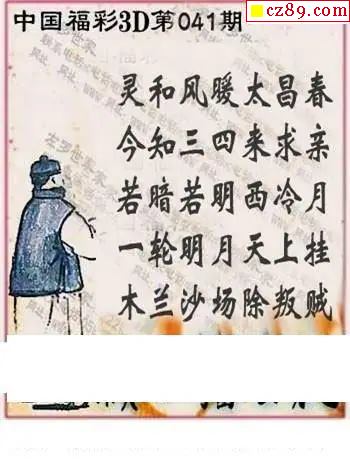 cz89.com
中国福彩3D第041期
灵和风暖太昌春
今知三四来求亲
若暗若明西冷月
一轮明月天上挂
木兰沙场除叛贼